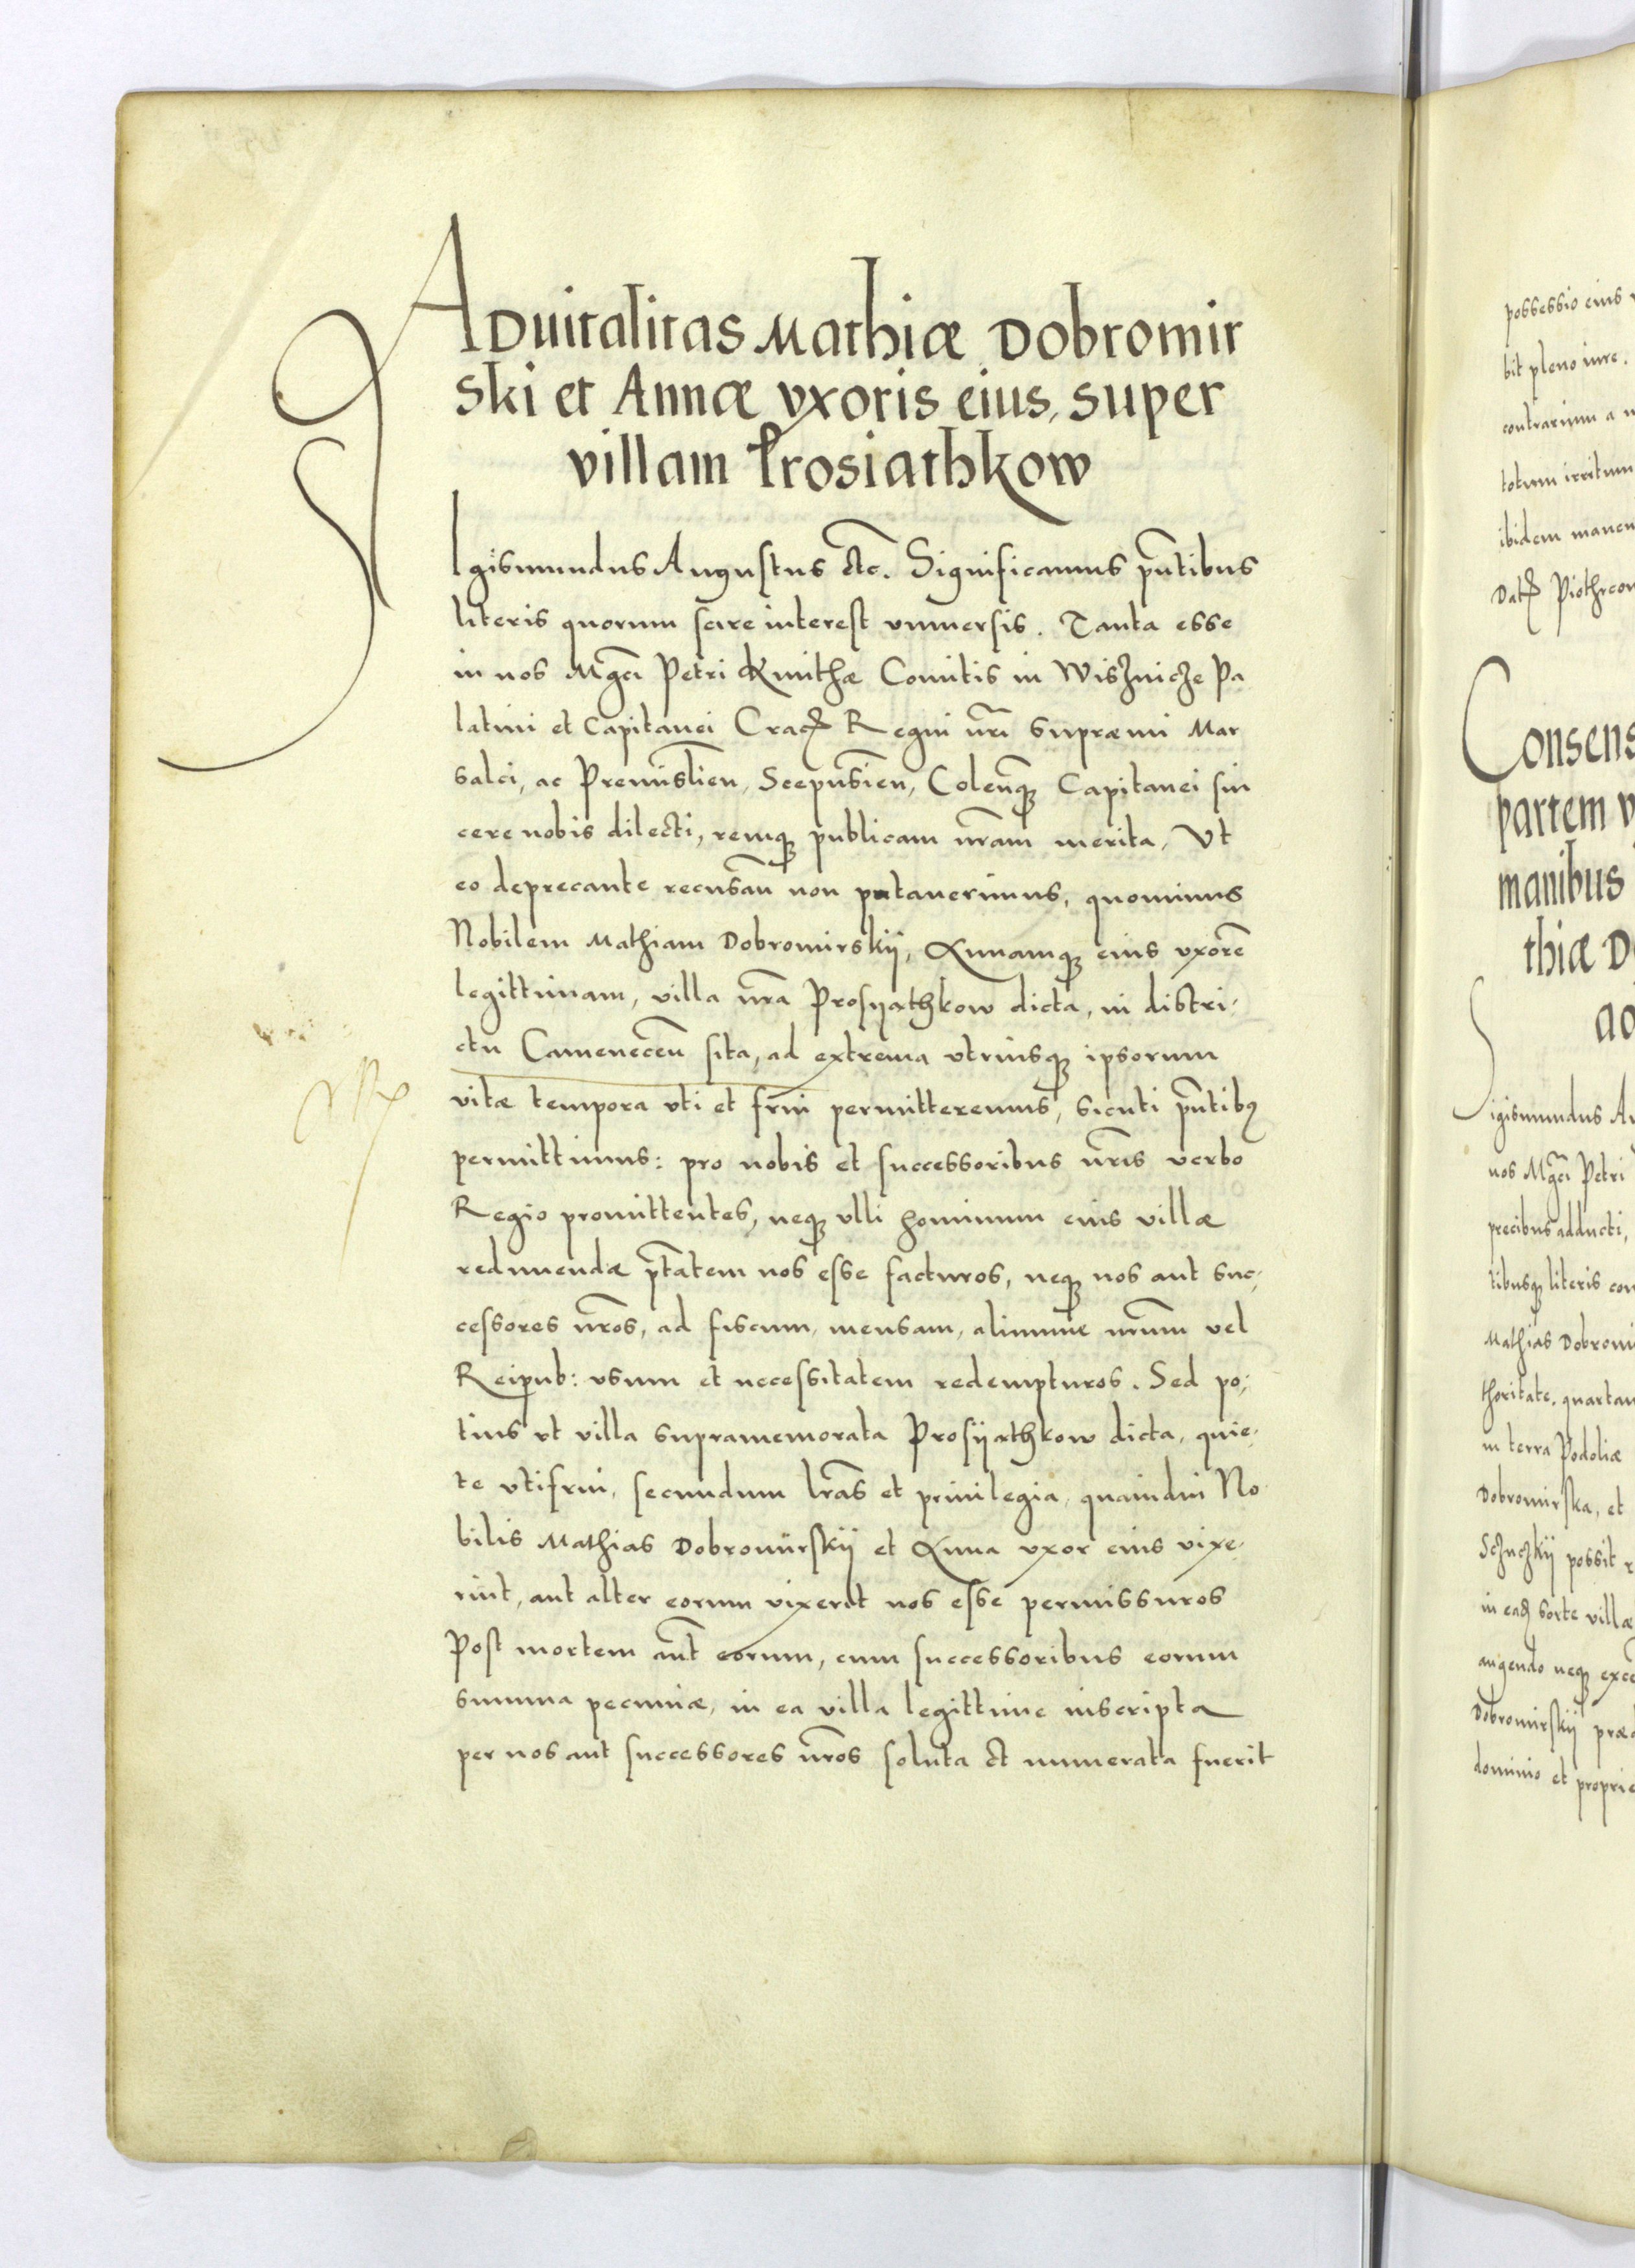 ADuitalitas Mathiæ Dobromir
ski et Annæ vxoris eius, super
villam Prosiathkow
Sigismundus Augustus etc. Significamus pñtibus
literis quorum scire interest vniuersis. Tanta esse
in nos Mgcĩ Petri Kmithæ Comitis in Wisznicze Pa
latini et Capitanei Crac̃ Regni nr̃i supræmi Mar
salci, ac Premislien̄, Scepusien̄, Colen̄q₃ Capitanei sin
cere nobis dilecti, remq₃ publicam nr̃am merita, Vt
eo deprecante recusan̄ non putauerimus, quominus
Nobilem Mathiam Dobromirskij, Annamq₃ eius vxorē
legittimam, villa nr̃a Prosyathkow dicta, in distri-
ctu Camenecen̄ sita, ad extrema vtriusq₃ ipsorum
vitæ tempora vti et frui permitteremus, sicuti pñtib₉
permittimus: pro nobis et successoribus nr̃is verbo
Regio promittentes, neq₃ vlli hominum eius villæ
redimendæ pt̃atem nos esse facturos, neq₃ nos aut suc-
cessores nr̃os, ad fiscum, mensam, alimune nr̃um vel
Reipub: vsum et necessitatem redempturos. Sed po-
tius vt villa supramemorata Prosyathkow dicta, quie-
te vtifrui, secundum lr̃as et priuilegia, quamdiu No
bilis Mathias Dobromirskij et Anna vxor eius vixe-
rint, aut alter eorum vixerit nos esse permissuros
Post mortem aũt eorum, cum successoribus eorum
summa pecuniæ, in ea villa legittime inscripta
per nos aut successores nr̃os soluta et numerata fuerit
possessio eius
bit pleno iure.
contrarium a
totum irritum
ibidem manen
Dat̃ Piothrcou
Consens
partem
manibus
thiæ D
ao
Sigismundus Au
nos Mgcĩ Petri
precibus adducti,
tibusq₃ literis con
Mathias Dobromi
thoritate. quartam
in terra Podoliæ
Dobromirska, et
possit
in ead̃ sorte villæ
augendo neq₃ exce
Dobromirskij præd
dominio et proprie